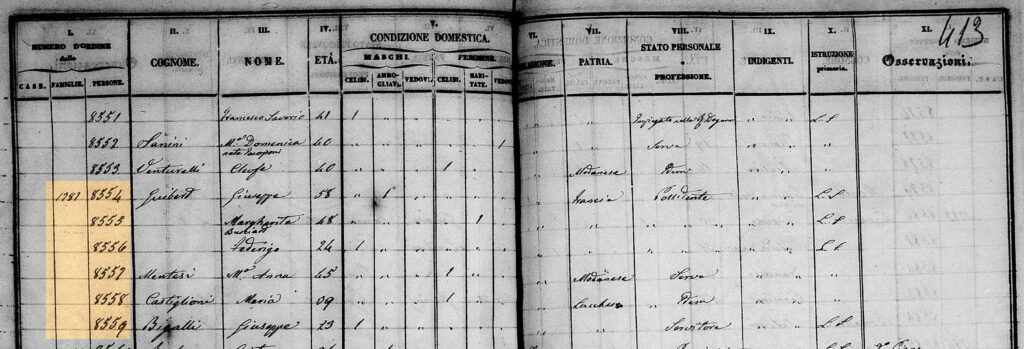 413
I. II. III. IV. V. VI. VII. VIII. IX. X. XI.
NUMERO D'ORDINE delle COGNOME. NOME. ETÀ. CONDIZIONE DOMESTICA. PATRIA. STATO PERSONALE e PROFESSIONE. INDIGENTI. ISTRUZIONE primaria. Osservazioni.
MASCHI FEMMINE.
CASE. FAMIGLIE. PERSONE. CELIBI. AMMOGLIATI. VEDOVI. CELIBI. MARITATE. VEDOVE
8551 Francesco Saverio 41 1 Impiegato alla Dogana L.S
8552 Mª Domenica 40 1 Serva
nata
8553 Venturelli Cleofe 40 1 Modanese Idem
1281 8554 Guibert Giuseppe 58 1 Francia Possidente L.S
8555 Margherita 48 1 L.S
8556 Federigo 24 1 L.S
8557 Mª Anna 45 1 Modanese Serva
8558 Castiglioni Maria 1 Idem
8559 Bigalli Giuseppe 23 1 Servitore L.S